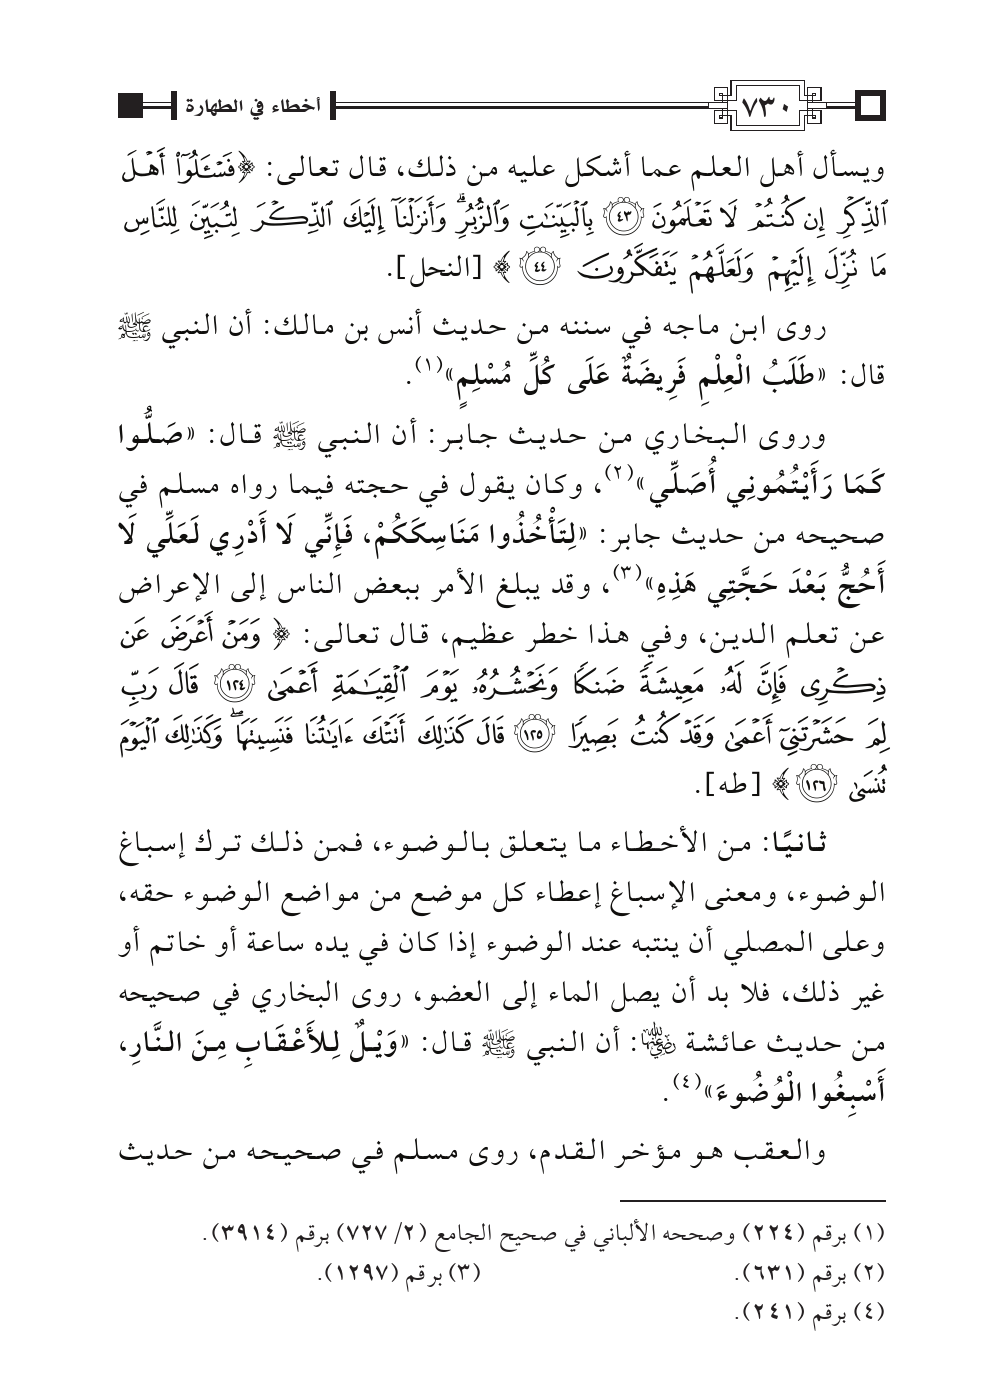 ٧٣٠
أخطاء في الطهارة
ويسأل أهل العلم عما أشكل عليه من ذلك، قال تعالى: ﴿فَسْـَٔلُوٓا۟ أَهْلَ
ٱلذِّكْرِ إِن كُنتُمْ لَا تَعْلَمُونَ ﴿٤٣﴾ بِٱلْبَيِّنَـٰتِ وَٱلزُّبُرِ ۗ وَأَنزَلْنَآ إِلَيْكَ ٱلذِّكْرَ لِتُبَيِّنَ لِلنَّاسِ
مَا نُزِّلَ إِلَيْهِمْ وَلَعَلَّهُمْ يَتَفَكَّرُونَ ﴿٤٤﴾ ﴾ [النحل].
روى ابن ماجه في سننه من حديث أنس بن مالك: أن النبي ﷺ
قال: «طَلَبُ الْعِلْمِ فَرِيضَةٌ عَلَى كُلِّ مُسْلِمٍ»(١).
وروى البخاري من حديث جابر: أن النبي ﷺ قال: «صَلُّوا
كَمَا رَأَيْتُمُونِي أُصَلِّي»(٢)، وكان يقول في حجته فيما رواه مسلم في
صحيحه من حديث جابر: «لِتَأْخُذُوا مَنَاسِكَكُمْ، فَإِنِّي لَا أَدْرِي لَعَلِّي لَا
أَحُجُّ بَعْدَ حَجَّتِي هَذِهِ»(٣)، وقد يبلغ الأمر ببعض الناس إلى الإعراض
عن تعلم الدين، وفي هذا خطر عظيم، قال تعالى: ﴿ وَمَنْ أَعْرَضَ عَن
ذِكْرِى فَإِنَّ لَهُۥ مَعِيشَةً ضَنكًا وَنَحْشُرُهُۥ يَوْمَ ٱلْقِيَـٰمَةِ أَعْمَىٰ ﴿١٢٤﴾ قَالَ رَبِّ
لِمَ حَشَرْتَنِىٓ أَعْمَىٰ وَقَدْ كُنتُ بَصِيرًا ﴿١٢٥﴾ قَالَ كَذَٰلِكَ أَتَتْكَ ءَايَـٰتُنَا فَنَسِيتَهَا ۖ وَكَذَٰلِكَ ٱلْيَوْمَ
تُنسَىٰ ﴿١٢٦﴾ ﴾ [طه].
ثانيًا: من الأخطاء ما يتعلق بالوضوء، فمن ذلك ترك إسباغ
الوضوء، ومعنى الإسباغ إعطاء كل موضع من مواضع الوضوء حقه،
وعلى المصلي أن ينتبه عند الوضوء إذا كان في يده ساعة أو خاتم أو
غير ذلك، فلا بد أن يصل الماء إلى العضو، روى البخاري في صحيحه
من حديث عائشة رضي الله عنها: أن النبي ﷺ قال: «وَيْلٌ لِلأَعْقَابِ مِنَ النَّارِ،
أَسْبِغُوا الْوُضُوءَ»(٤).
والعقب هو مؤخر القدم، روى مسلم في صحيحه من حديث
(١) برقم (٢٢٤) وصححه الألباني في صحيح الجامع (٢/ ٧٢٧) برقم (٣٩١٤).
(٢) برقم (٦٣١). (٣) برقم (١٢٩٧).
(٤) برقم (٢٤١).